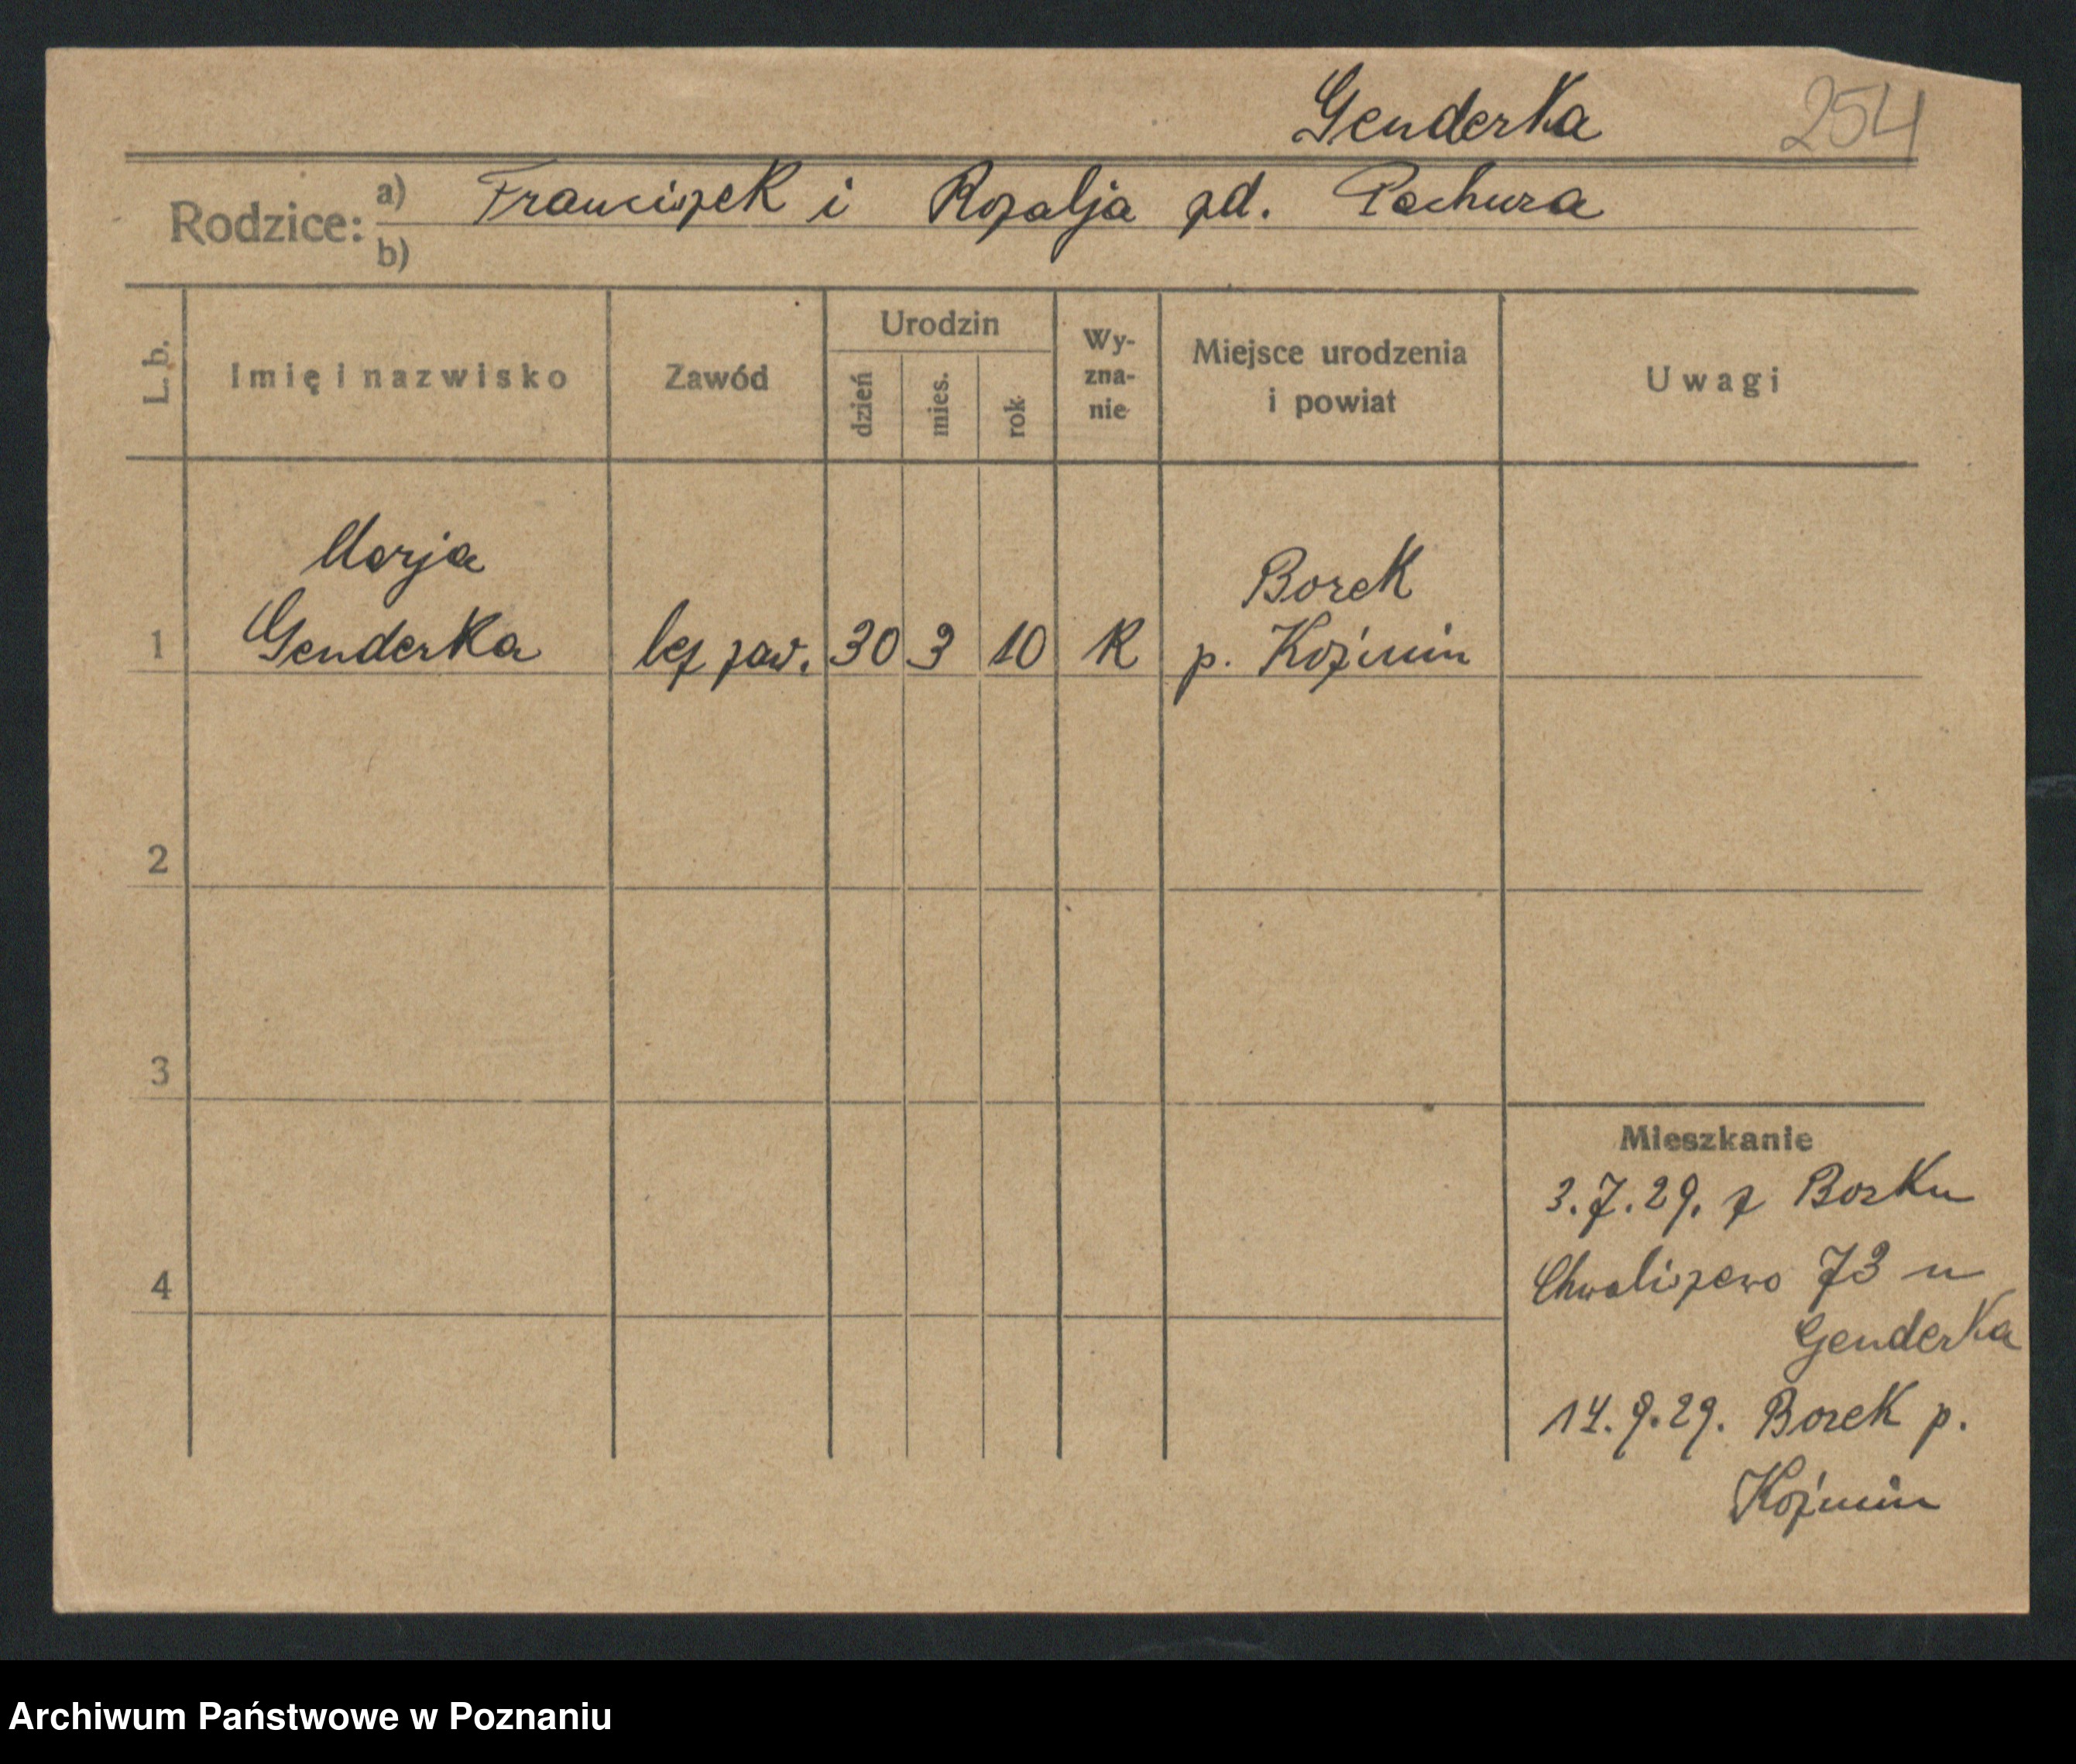 Genderka 254
Rodzice: a) Franciszek i Rozalja zd. Pachura
b)
L. b. Imię i nazwisko Zawód Urodzin dzień mies. rok Wy-zna-nie Miejsce urodzenia i powiat Uwagi
Marja Borek
1 Genderka bez zaw. 30 3 10 K p. Koźmin
2
3
Mieszkanie
3.7.29. z Borku
4 Chwaliszewo 73 u
Genderka
14.9.29. Borek p.
Koźmin
Archiwum Państwowe w Poznaniu